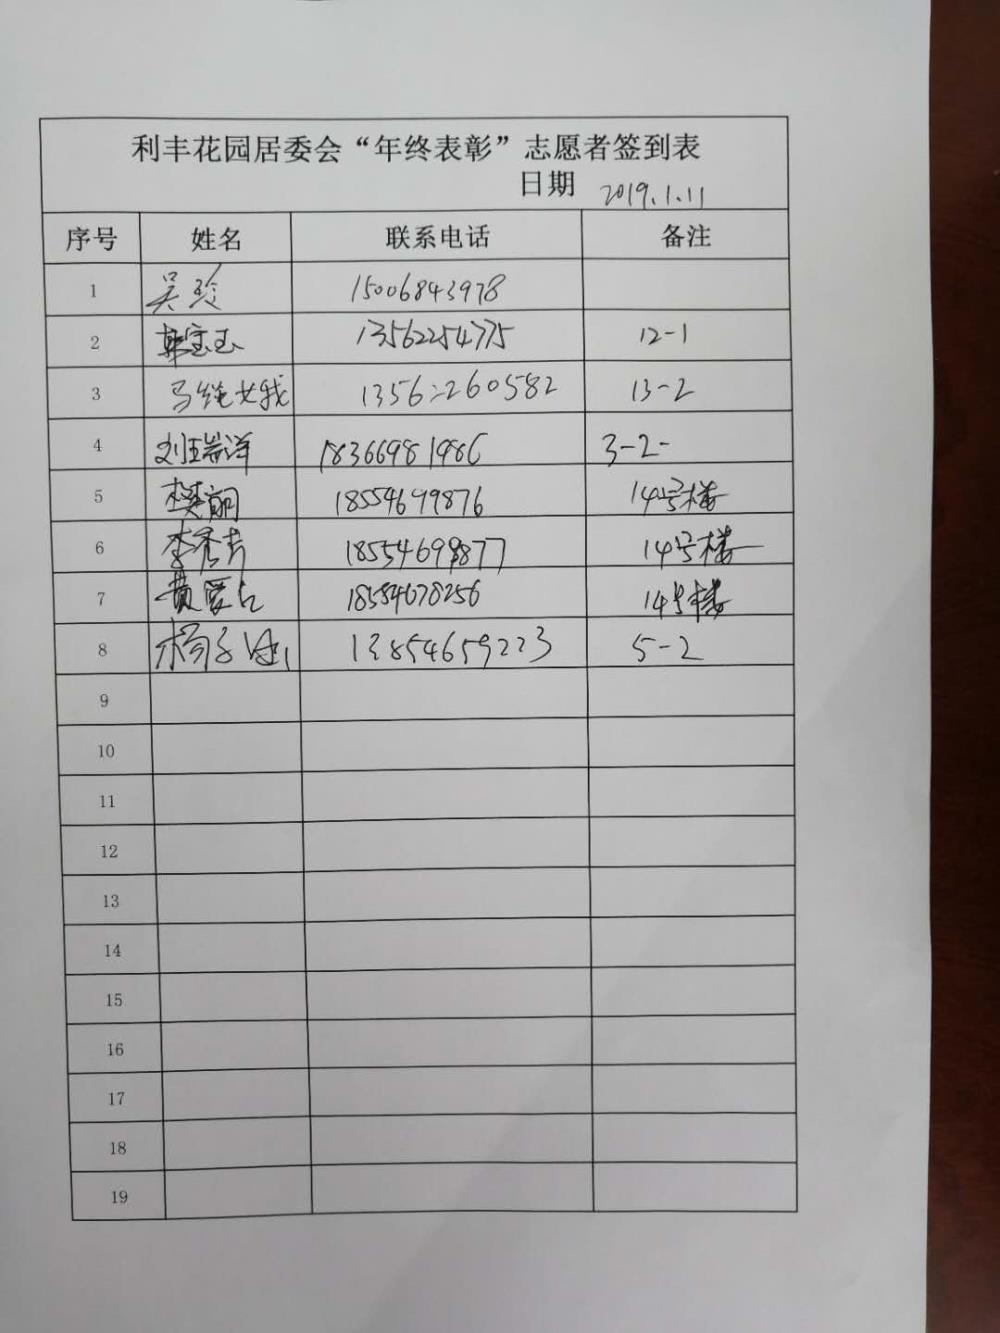 利丰花园居委会“年终表彰”志愿者签到表
日期 2019.1.11
序号 姓名 联系电话 备注
1 吴玲 15006843978
2 韩宝玉 13562254775 12-1
3 马继娥 13562260582 13-2
4 刘瑞洋 18366981986 3-2-
5 樊丽 18554699876 14号楼
6 李秀芳 18554699877 14号楼
7 黄爱 18554678256 14号楼
8 杨 13854659223 5-2
9
10
11
12
13
14
15
16
17
18
19